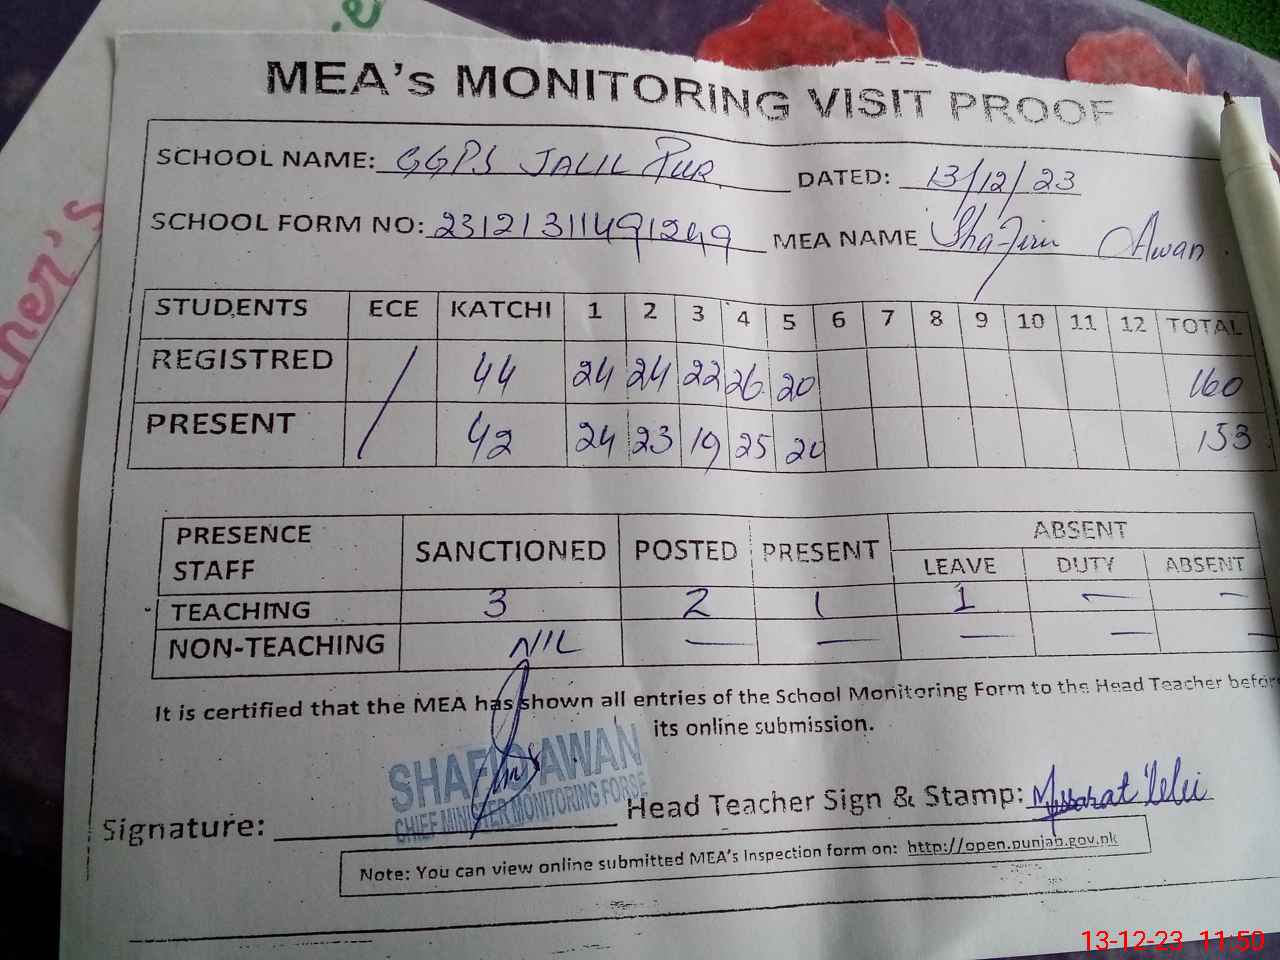 MEA's MONITORING VISIT PROOF
SCHOOL NAME: GGPS JALIL PUR DATED: 13/12/23
SCHOOL FORM NO: 23121311491249 MEA NAME Awan
STUDENTS ECE KATCHI 1 2 3 4 5 6 7 8 9 10 11 12 TOTAL
REGISTRED / 44 24 24 22 26 20 160
PRESENT 42 24 23 19 25 20 153
PRESENCE STAFF SANCTIONED POSTED PRESENT ABSENT
LEAVE DUTY ABSENT
TEACHING 3 2 1 1 — —
NON-TEACHING NIL — — — — —
It is certified that the MEA has shown all entries of the School Monitoring Form to the Head Teacher before
its online submission.
SHAFIQ AWAN
CHIEF MINISTER MONITORING FORSE
Signature: Head Teacher Sign & Stamp:
Note: You can view online submitted MEA's Inspection form on: http://open.punjab.gov.pk
13-12-23 11:50